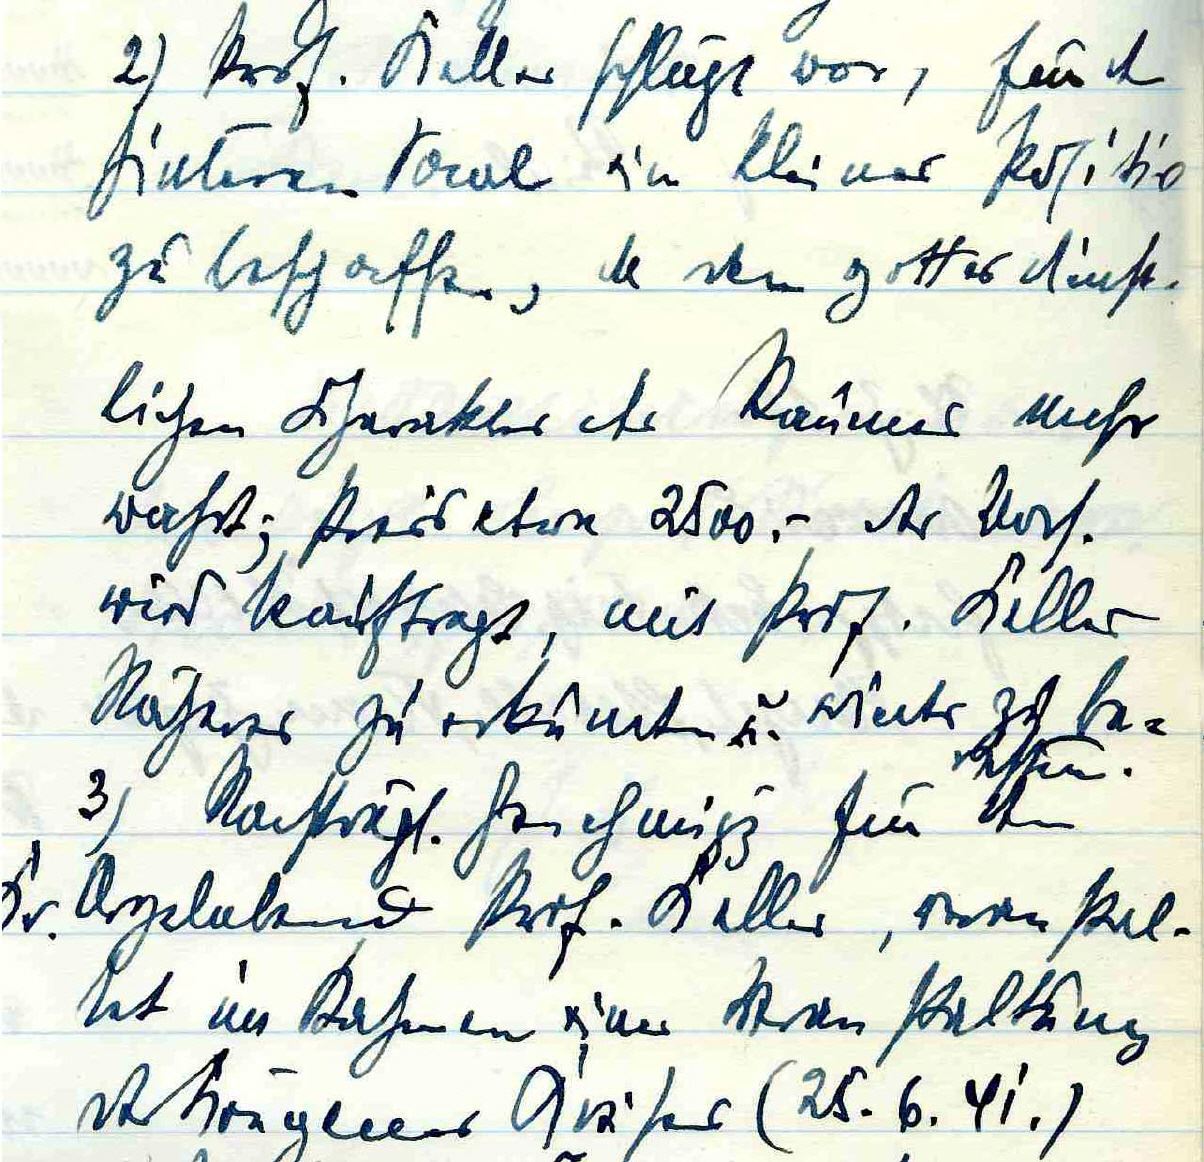 2) Prof. Keller schlägt vor, für d
hinteren Vocal ein kleines Positiv
zu beschaffen, das den gottesdienst-
lichen Charakter des Raumes mehr
wahrt; Preis etwa 2500.- Der Vors.
wird beauftragt, mit Prof. Keller
Näheres zu erkunden u. weiter zu be-
richten.
3) Nachträgl. Genehmigg für den
Orgelabend Prof. Keller, veranstal-
tet im Rahmen einer Veranstaltung
der (25. 6. 41.)